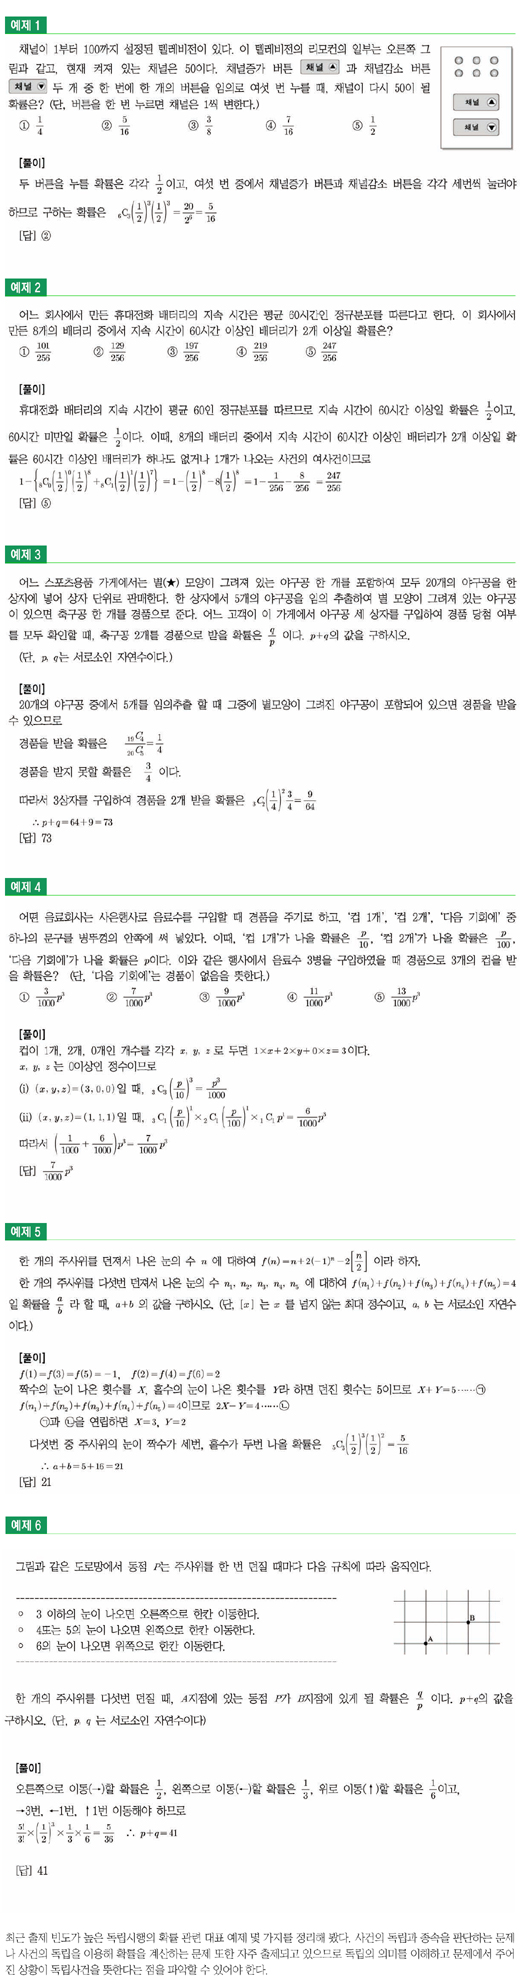 예제 1
채널이 1부터 100까지 설정된 텔레비전이 있다. 이 텔레비전의 리모컨의 일부는 오른쪽 그
림과 같고, 현재 켜져 있는 채널은 50이다. 채널증가 버튼 채널 ▲ 과 채널감소 버튼
채널 ▼ 두 개 중 한 번에 한 개의 버튼을 임의로 여섯 번 누를 때, 채널이 다시 50이 될
확률은? (단, 버튼을 한 번 누르면 채널은 1씩 변한다.)
채널 ▲
채널 ▼
① 1/4 ② 5/16 ③ 3/8 ④ 7/16 ⑤ 1/2
[풀이]
두 버튼을 누를 확률은 각각 1/2이고, 여섯 번 중에서 채널증가 버튼과 채널감소 버튼을 각각 세번씩 눌러야
하므로 구하는 확률은 ₆C₃(1/2)³(1/2)³=20/2⁶=5/16
[답] ②
예제 2
어느 회사에서 만든 휴대전화 배터리의 지속 시간은 평균 60시간인 정규분포를 따른다고 한다. 이 회사에서
만든 8개의 배터리 중에서 지속 시간이 60시간 이상인 배터리가 2개 이상일 확률은?
① 101/256 ② 129/256 ③ 197/256 ④ 219/256 ⑤ 247/256
[풀이]
휴대전화 배터리의 지속 시간이 평균 60인 정규분포를 따르므로 지속 시간이 60시간 이상일 확률은 1/2이고,
60시간 미만일 확률은 1/2이다. 이때, 8개의 배터리 중에서 지속 시간이 60시간 이상인 배터리가 2개 이상일 확
률은 60시간 이상인 배터리가 하나도 없거나 1개가 나오는 사건의 여사건이므로
1-{₈C₀(1/2)⁰(1/2)⁸+₈C₁(1/2)¹(1/2)⁷}=1-(1/2)⁸-8(1/2)⁸=1-1/256-8/256=247/256
[답] ⑤
예제 3
어느 스포츠용품 가게에서는 별(★) 모양이 그려져 있는 야구공 한 개를 포함하여 모두 20개의 야구공을 한
상자에 넣어 상자 단위로 판매한다. 한 상자에서 5개의 야구공을 임의 추출하여 별 모양이 그려져 있는 야구공
이 있으면 축구공 한 개를 경품으로 준다. 어느 고객이 이 가게에서 야구공 세 상자를 구입하여 경품 당첨 여부
를 모두 확인할 때, 축구공 2개를 경품으로 받을 확률은 q/p 이다. p+q의 값을 구하시오.
(단, p, q는 서로소인 자연수이다.)
[풀이]
20개의 야구공 중에서 5개를 임의추출 할 때 그중에 별모양이 그려진 야구공이 포함되어 있으면 경품을 받을
수 있으므로
경품을 받을 확률은 ₁₉C₄/₂₀C₅=1/4
경품을 받지 못할 확률은 3/4 이다.
따라서 3상자를 구입하여 경품을 2개 받을 확률은 ₃C₂(1/4)²3/4=9/64
∴ p+q=64+9=73
[답] 73
예제 4
어떤 음료회사는 사은행사로 음료수를 구입할 때 경품을 주기로 하고, ‘컵 1개’, ‘컵 2개’, ‘다음 기회에’ 중
하나의 문구를 병뚜껑의 안쪽에 써 넣었다. 이때, ‘컵 1개’가 나올 확률은 p/10, ‘컵 2개’가 나올 확률은 p/100,
‘다음 기회에’가 나올 확률은 p이다. 이와 같은 행사에서 음료수 3병을 구입하였을 때 경품으로 3개의 컵을 받
을 확률은? (단, ‘다음 기회에’는 경품이 없음을 뜻한다.)
① 3/1000 p³ ② 7/1000 p³ ③ 9/1000 p³ ④ 11/1000 p³ ⑤ 13/1000 p³
[풀이]
컵이 1개, 2개, 0개인 개수를 각각 x, y, z 로 두면 1×x+2×y+0×z=3이다.
x, y, z 는 0이상인 정수이므로
(i) (x, y, z)=(3, 0, 0)일 때, ₃C₃(p/10)³=p³/1000
(ii) (x, y, z)=(1, 1, 1)일 때, ₃C₁(p/10)¹×₂C₁(p/100)¹×₁C₁p¹=6/1000 p³
따라서 (1/1000+6/1000)p³=7/1000 p³
[답] 7/1000 p³
예제 5
한 개의 주사위를 던져서 나온 눈의 수 n 에 대하여 f(n)=n+2(-1)ⁿ-2[n/2] 이라 하자.
한 개의 주사위를 다섯번 던져서 나온 눈의 수 n₁, n₂, n₃, n₄, n₅ 에 대하여 f(n₁)+f(n₂)+f(n₃)+f(n₄)+f(n₅)=4
일 확률을 a/b 라 할 때, a+b 의 값을 구하시오. (단, [x] 는 x 를 넘지 않는 최대 정수이고, a, b 는 서로소인 자연수
이다.)
[풀이]
f(1)=f(3)=f(5)=-1, f(2)=f(4)=f(6)=2
짝수의 눈이 나온 횟수를 X, 홀수의 눈이 나온 횟수를 Y라 하면 던진 횟수는 5이므로 X+Y=5……㉠
f(n₁)+f(n₂)+f(n₃)+f(n₄)+f(n₅)=4이므로 2X-Y=4……㉡
㉠과 ㉡을 연립하면 X=3, Y=2
다섯번 중 주사위의 눈이 짝수가 세번, 홀수가 두번 나올 확률은 ₅C₃(1/2)³(1/2)²=5/16
∴ a+b=5+16=21
[답] 21
예제 6
그림과 같은 도로망에서 동점 P는 주사위를 한 번 던질 때마다 다음 규칙에 따라 움직인다.
○ 3 이하의 눈이 나오면 오른쪽으로 한칸 이동한다.
○ 4또는 5의 눈이 나오면 왼쪽으로 한칸 이동한다.
○ 6의 눈이 나오면 위쪽으로 한칸 이동한다.
B
A
한 개의 주사위를 다섯번 던질 때, A지점에 있는 동점 P가 B지점에 있게 될 확률은 q/p 이다. p+q의 값을
구하시오. (단, p, q 는 서로소인 자연수이다)
[풀이]
오른쪽으로 이동(→)할 확률은 1/2, 왼쪽으로 이동(←)할 확률은 1/3, 위로 이동(↑)할 확률은 1/6이고,
→3번, ←1번, ↑1번 이동해야 하므로
5!/3!×(1/2)³×1/3×1/6=5/36 ∴ p+q=41
[답] 41
최근 출제 빈도가 높은 독립시행의 확률 관련 대표 예제 몇 가지를 정리해 봤다. 사건의 독립과 종속을 판단하는 문제
나 사건의 독립을 이용해 확률을 계산하는 문제 또한 자주 출제되고 있으므로 독립의 의미를 이해하고 문제에서 주어
진 상황이 독립사건을 뜻한다는 점을 파악할 수 있어야 한다.